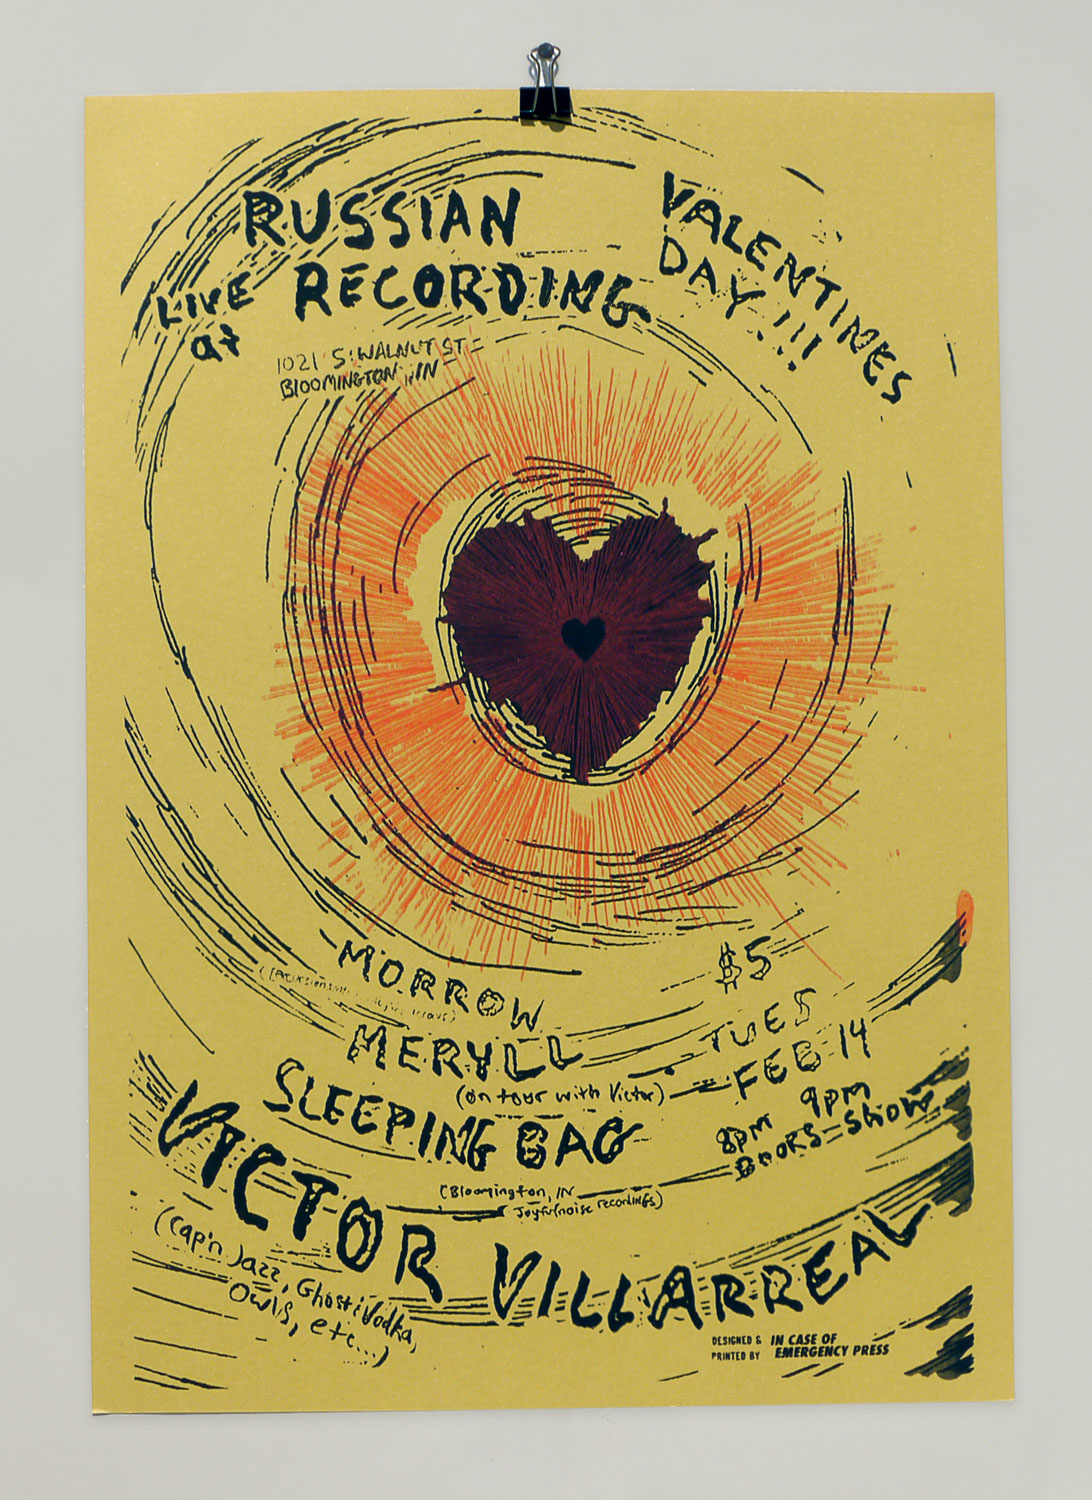 RUSSIAN
LIVE at RECORDING
VALENTINES
DAY!!!
1021 S. WALNUT ST
BLOOMINGTON, IN
MORROW
MERYLL
(on tour with Victor)
SLEEPING BAG
(Bloomington, IN
Joyful noise recordings)
$5
TUES
FEB 14
8pm 9pm
DOORS-SHOW
VICTOR VILLARREAL
(Cap'n Jazz, Ghosti Vodka,
Owls, etc...)
DESIGNED & IN CASE OF
PRINTED BY EMERGENCY PRESS